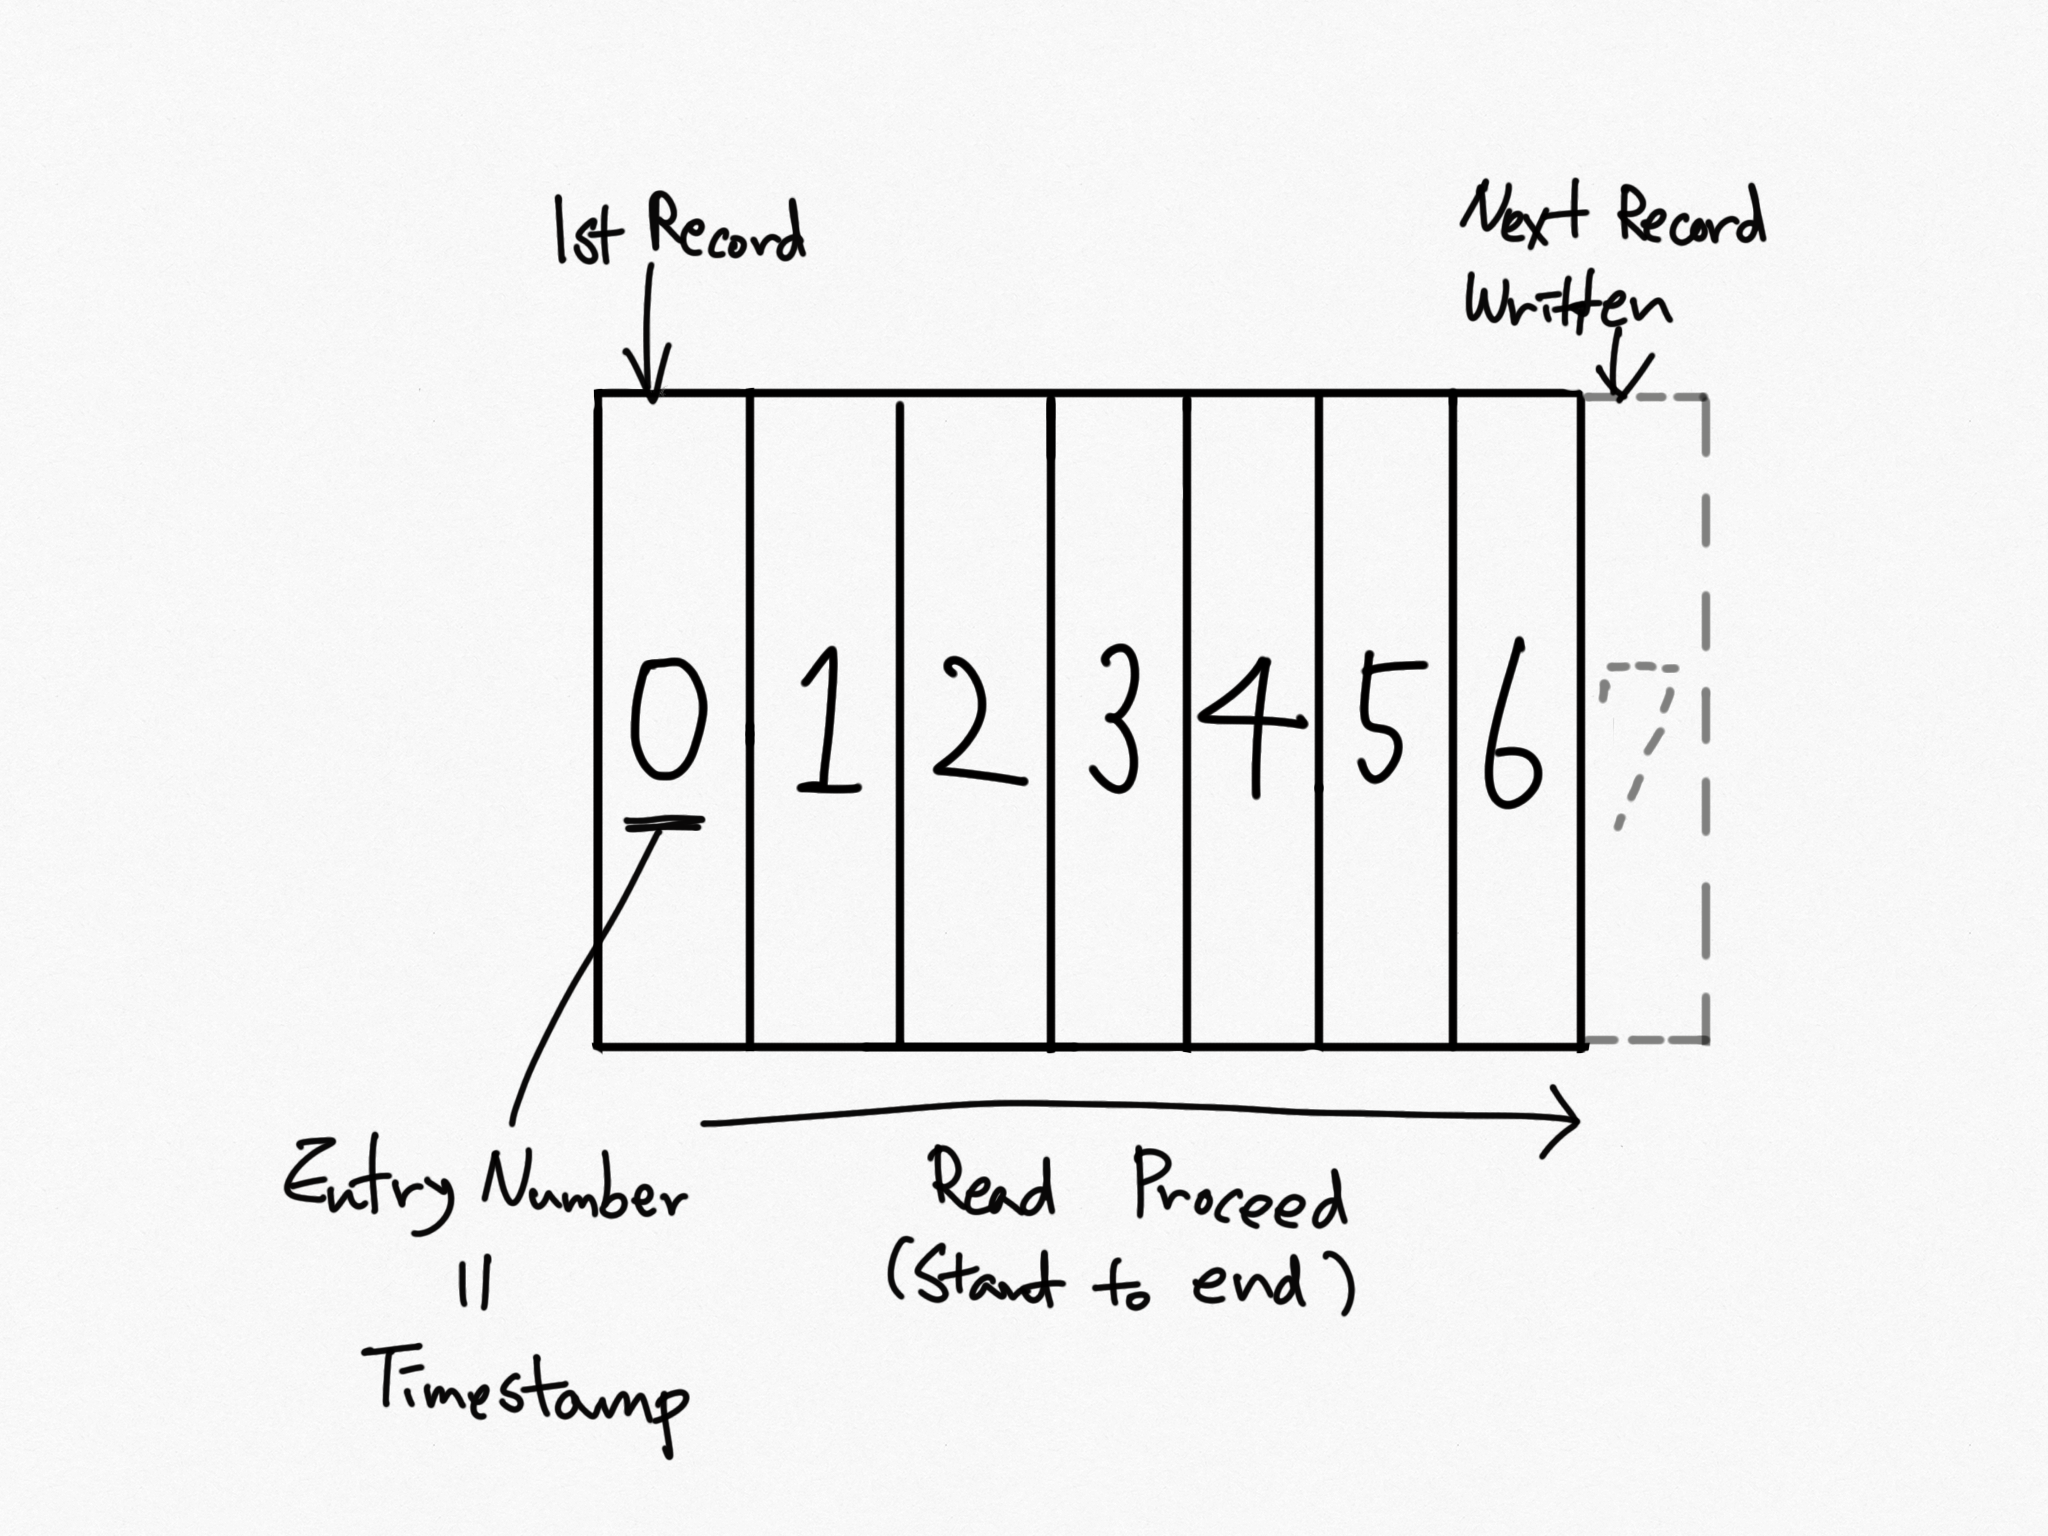 1st Record
Next Record
Written
0 1 2 3 4 5 6 7
Entry Number
=
Timestamp
Read Proceed
(Start to end)